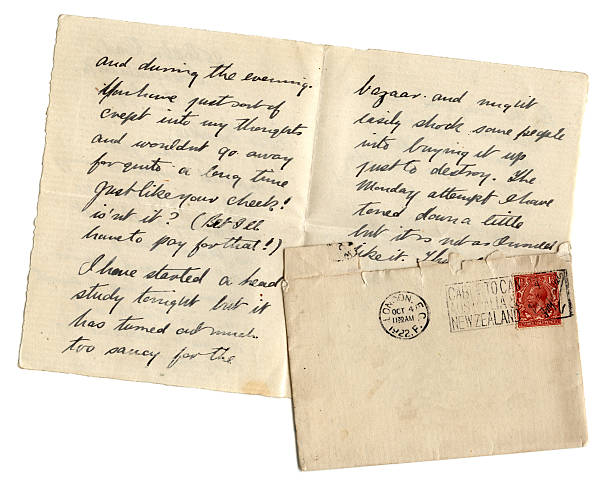 and during the evening.
You have just sort of
crept into my thoughts
and wouldn't go away
for quite a long time
Just like your cheek!
is'nt it? (Bet I'll
have to pay for that!)
I have started a head
study tonight but it
has turned out much
too saucy for the
bazaar. and might
easily shock some people
into buying it up
just to destroy. The
Monday attempt I have
toned down a little
but it is not as I would
like it. The
LONDON, E.C.
OCT 4
1922. F.
CABLE TO CA
NEW ZEALAND